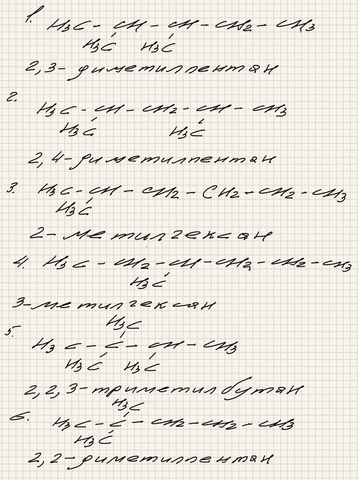 1. H3C - CH - CH - CH2 - CH3
H3C H3C
2,3- диметилпентан
2. H3C - CH - CH2 - CH - CH3
H3C H3C
2,4- диметилпентан
3. H3C - CH - CH2 - CH2 - CH2 - CH3
H3C
2- метилгексан
4. H3C - CH2 - CH - CH2 - CH2 - CH3
H3C
3-метилгексан
5. H3C
H3C - C - CH - CH3
H3C H3C
2,2,3-триметилбутан
6. H3C
H3C - C - CH2 - CH2 - CH3
H3C
2,2- диметилпентан